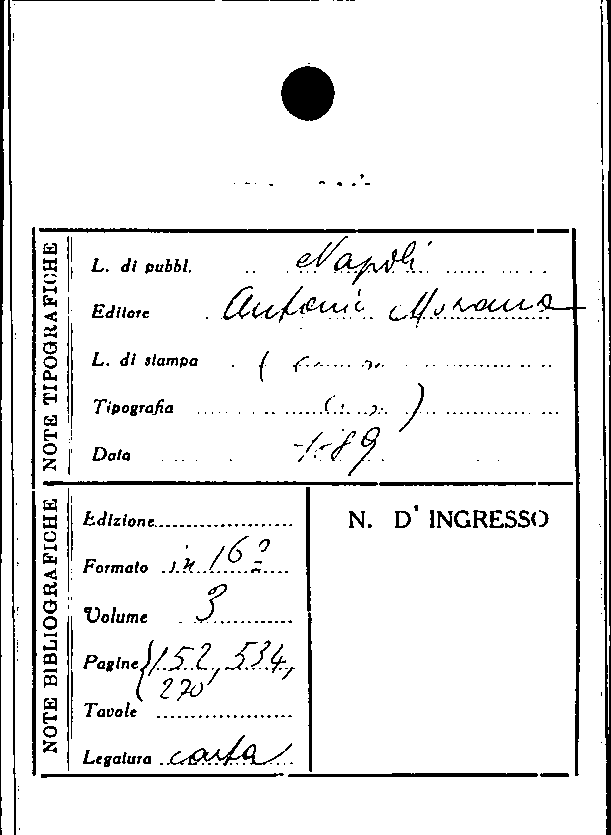 NOTE TIPOGRAFICHE
L. di pubbl. Napoli
Editore Antonio Morano
L. di stampa (
Tipografia )
Data 1889
NOTE BIBLIOGRAFICHE
Edizione
Formato in 16º
Volume 3
Pagine {152, 534,
270
Tavole
Legatura carta
N. D' INGRESSO